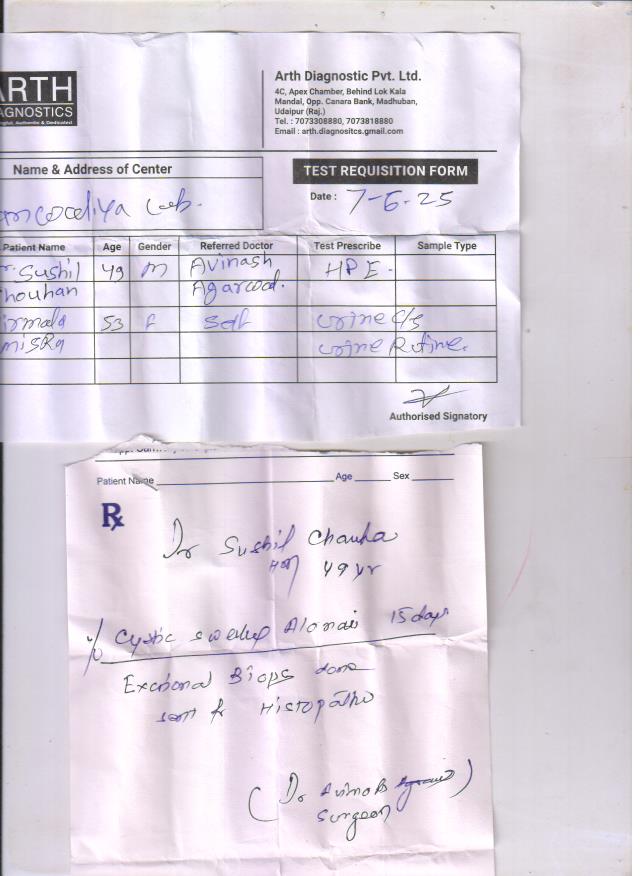 ARTH
AGNOSTICS
Arth Diagnostic Pvt. Ltd.
4C, Apex Chamber, Behind Lok Kala
Mandal, Opp. Canara Bank, Madhuban,
Udaipur (Raj.)
Tel. : 7073308880, 7073818880
Email : arth.diagnositcs.gmail.com
Name & Address of Center
TEST REQUISITION FORM
Lab.
Date : 7-6-25
Patient Name Age Gender Referred Doctor Test Prescribe Sample Type
Sushil 49 M Avinash HPE.
houhan Agarwal.
irmala 53 F Self Urine C/s
misra Urine Rutine.
Authorised Signatory
Patient Name Age Sex
Rx
Dr Sushil Chauha
49 yr
Cystic 15 days
Biops done
sent fr Histopatho
(Dr Avinash )
Surgeon